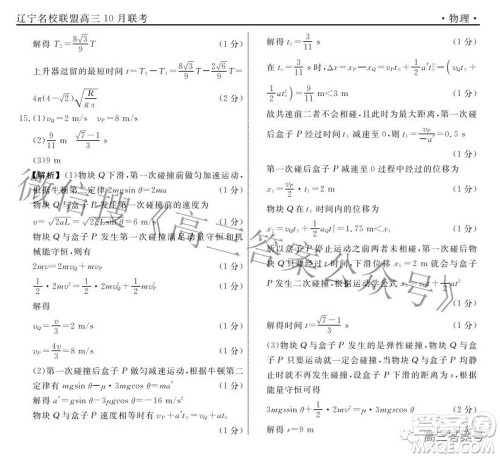 辽宁名校联盟高三10月联考
·物理·
解得 T₂=8√3/9 T (1分)
上升器逗留的最短时间 t=T₂-T₁=8√3/9 T-2√6/9 T=
4π(4-√2)√(R/Kg) (2分)
15.(1)v_Q=2 m/s v_P=8 m/s
(2)9/11 m (√7-1)/3 s
(3)9 m
【解析】(1)物块 Q 下滑,第一次碰撞前做匀加速运动,
根据牛顿第二定律 2mgsin θ=2ma (1分)
物块 Q 与盒子 P 发生第一次碰撞前的速度为
v=√(2aL)=√(2gLsin θ)=6 m/s (1分)
物块 Q 与盒子 P 发生第一次碰撞动量守恒和机
械能守恒,则有
2mv=2mv_Q+mv_P (1分)
1/2·2mv²=1/2·2mv_Q²+1/2·mv_P² (1分)
解得
v_Q=v/3=2 m/s (1分)
v_P=4v/3=8 m/s (1分)
(2)第一次碰撞后盒子 P 做匀减速运动,根据牛顿第二
定律有 mgsin θ-μ·3mgcos θ=ma′ (1分)
解得 a′=gsin θ-3μgcos θ=-16 m/s²
物块 Q 与盒子 P 速度相等时有 v_P+a′t₀=v_Q+at₀
解得 t₀=3/11 s (1分)
在 t₀=3/11 s 时,Δx=x_P-x_Q=v_Pt₀+1/2 a′t₀²-(v_Qt₀+
1/2 at₀²)=9/11 m<3 m (1分)
故共速前二者不会相撞,此时也为最大距离,第一次碰
后盒子 P 经过时间 t₁ 减速至 0,则有 t₁=v_P/(-a′)=0.5 s
(1分)
第一次碰撞后到盒子 P 减速至 0 过程中经过的位移为
x₁=v_P/2·t₁=2 m (1分)
物块 Q 在 t₁ 时间内的位移为
x₂=v_Qt₁+1/2 at₁²=1.75 m<x₁ (1分)
所以盒子 P 停止运动之前两者未相碰,则第二次碰撞前
物块 Q 的位移 x₃=2 m 就会与盒子 P 发生第二次
碰撞,根据运动学公式 x₃=v_Qt₂+1/2 at₂²
解得时间 t₂=(√7-1)/3 s (1分)
(3)物块 Q 与盒子 P 发生的是弹性碰撞,物块 Q 与盒
子 P 只要运动就一定会碰撞,当物块 Q 与盒子 P 均静
止时就再也不发生碰撞,设盒子运动的总路程为 s,根据
能量守恒可得
3mgssin θ+1/2·2mv²=μ·3mgscos θ (2分)
解得 s=9 m (1分)
微信搜《高三答案公众号》
高三答案号